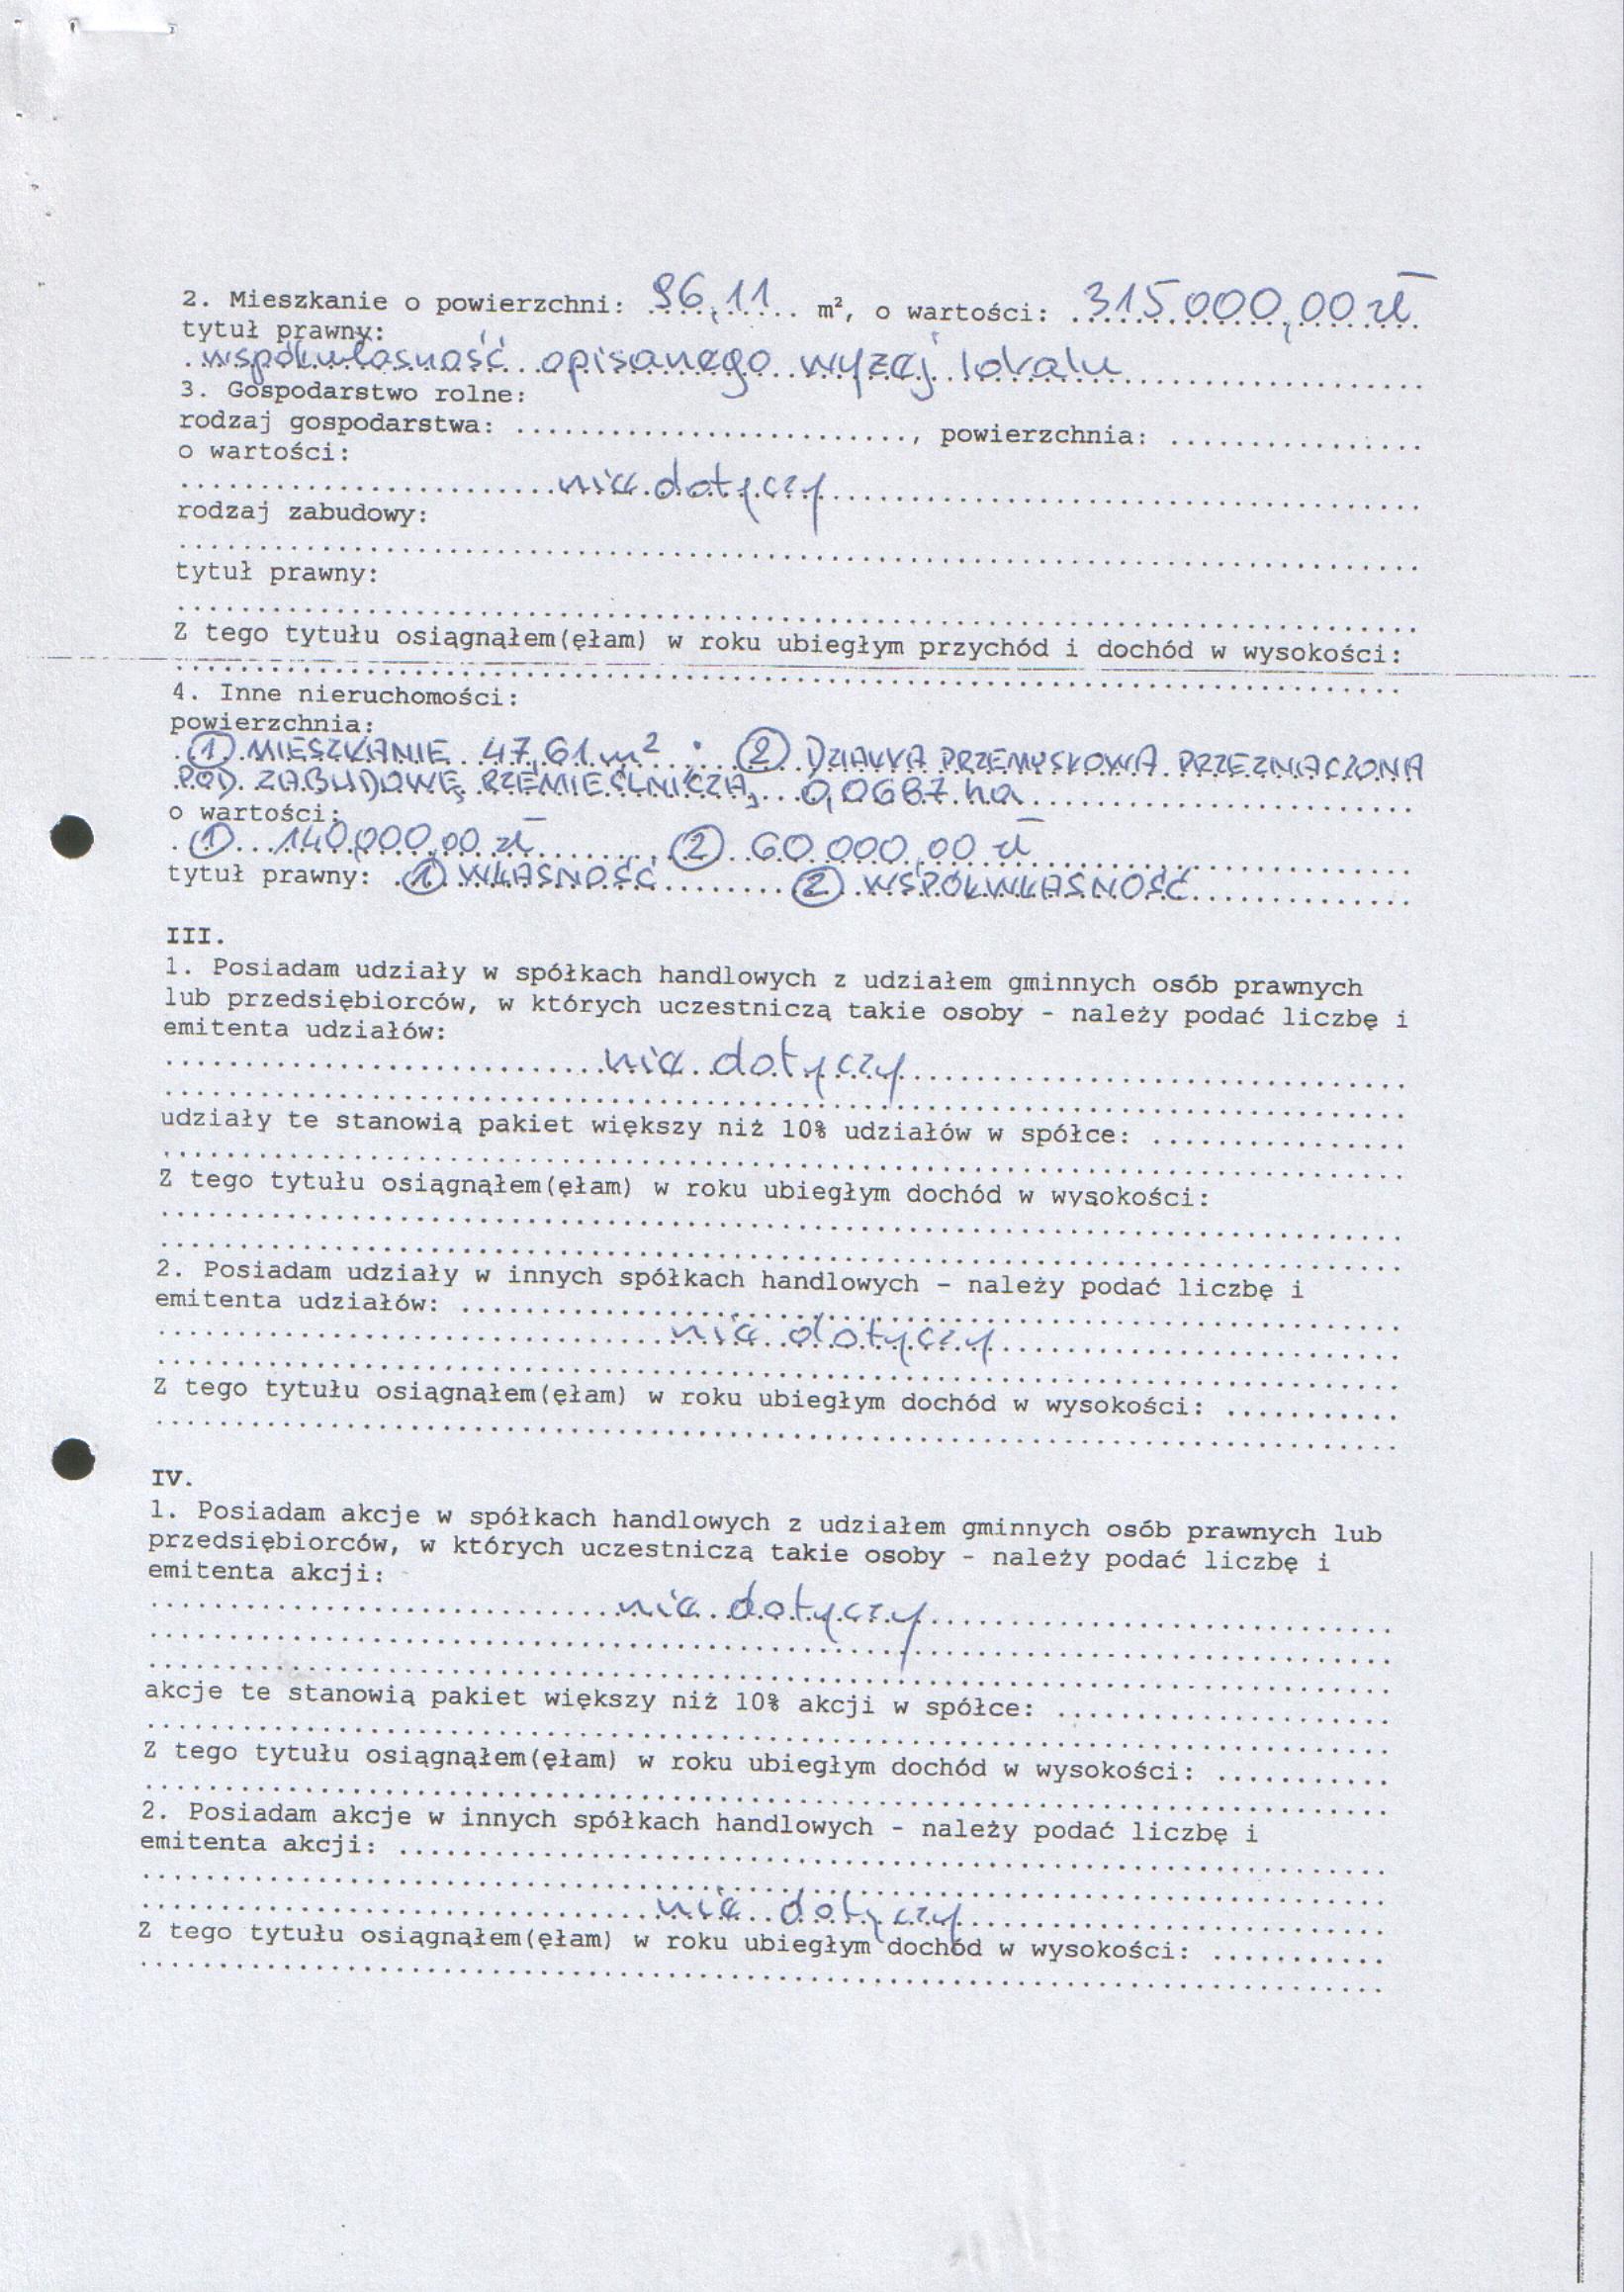 2. Mieszkanie o powierzchni: 96,11 m², o wartości: 315.000,00 zł
tytuł prawny:
współwłasność opisanego wyżej lokalu
3. Gospodarstwo rolne:
rodzaj gospodarstwa: ........................., powierzchnia: ................
o wartości:
nie dotyczy
rodzaj zabudowy:
tytuł prawny:
Z tego tytułu osiągnąłem(ęłam) w roku ubiegłym przychód i dochód w wysokości:
4. Inne nieruchomości:
powierzchnia:
① MIESZKANIE 47,61 m² ; ② DZIAŁKA PRZEMYSŁOWA PRZEZNACZONA
POD ZABUDOWĘ RZEMIEŚLNICZĄ, 0,0687 ha
o wartości:
① 140.000,00 zł ② 60.000,00 zł
tytuł prawny: ① WŁASNOŚĆ ② WSPÓŁWŁASNOŚĆ
III.
1. Posiadam udziały w spółkach handlowych z udziałem gminnych osób prawnych
lub przedsiębiorców, w których uczestniczą takie osoby - należy podać liczbę i
emitenta udziałów:
nie dotyczy
udziały te stanowią pakiet większy niż 10% udziałów w spółce: ................
Z tego tytułu osiągnąłem(ęłam) w roku ubiegłym dochód w wysokości:
2. Posiadam udziały w innych spółkach handlowych - należy podać liczbę i
emitenta udziałów:
nie dotyczy
Z tego tytułu osiągnąłem(ęłam) w roku ubiegłym dochód w wysokości: ...........
IV.
1. Posiadam akcje w spółkach handlowych z udziałem gminnych osób prawnych lub
przedsiębiorców, w których uczestniczą takie osoby - należy podać liczbę i
emitenta akcji:
nie dotyczy
akcje te stanowią pakiet większy niż 10% akcji w spółce: .....................
Z tego tytułu osiągnąłem(ęłam) w roku ubiegłym dochód w wysokości: ...........
2. Posiadam akcje w innych spółkach handlowych - należy podać liczbę i
emitenta akcji:
nie dotyczy
Z tego tytułu osiągnąłem(ęłam) w roku ubiegłym dochód w wysokości: ...........